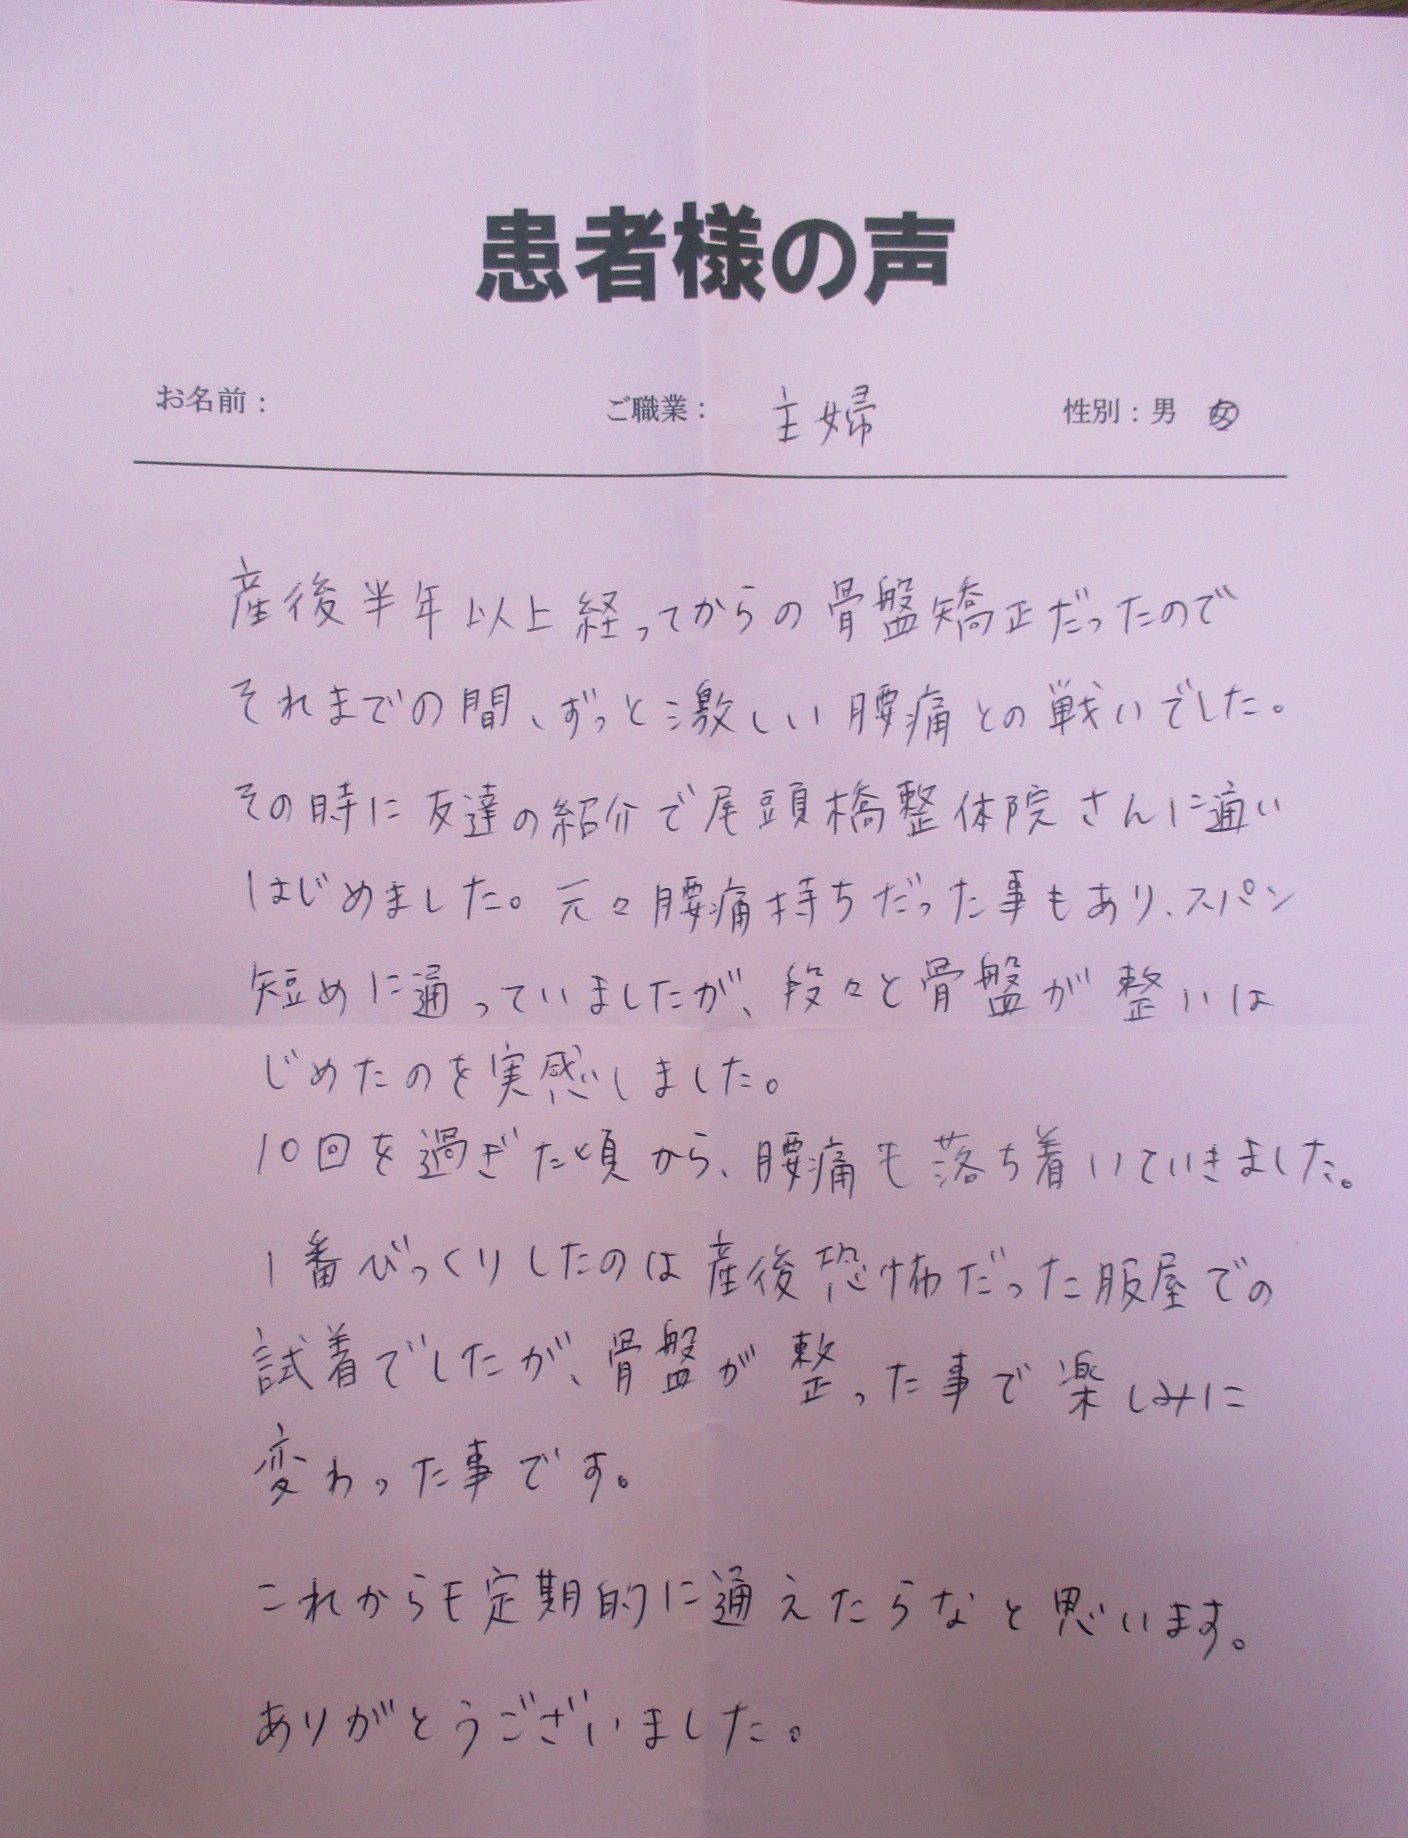 患者様の声
お名前: ご職業: 主婦 性別:男 女
産後半年以上経ってからの骨盤矯正だったので
それまでの間、ずっと激しい腰痛との戦いでした。
その時に友達の紹介で尾頭橋整体院さんに通い
はじめました。元々腰痛持ちだった事もあり、スパン
短めに通っていましたが、段々と骨盤が整いは
じめたのを実感しました。
10回を過ぎた頃から、腰痛も落ち着いていきました。
1番びっくりしたのは産後恐怖だった服屋での
試着でしたが、骨盤が整った事で楽しみに
変わった事です。
これからも定期的に通えたらなと思います。
ありがとうございました。